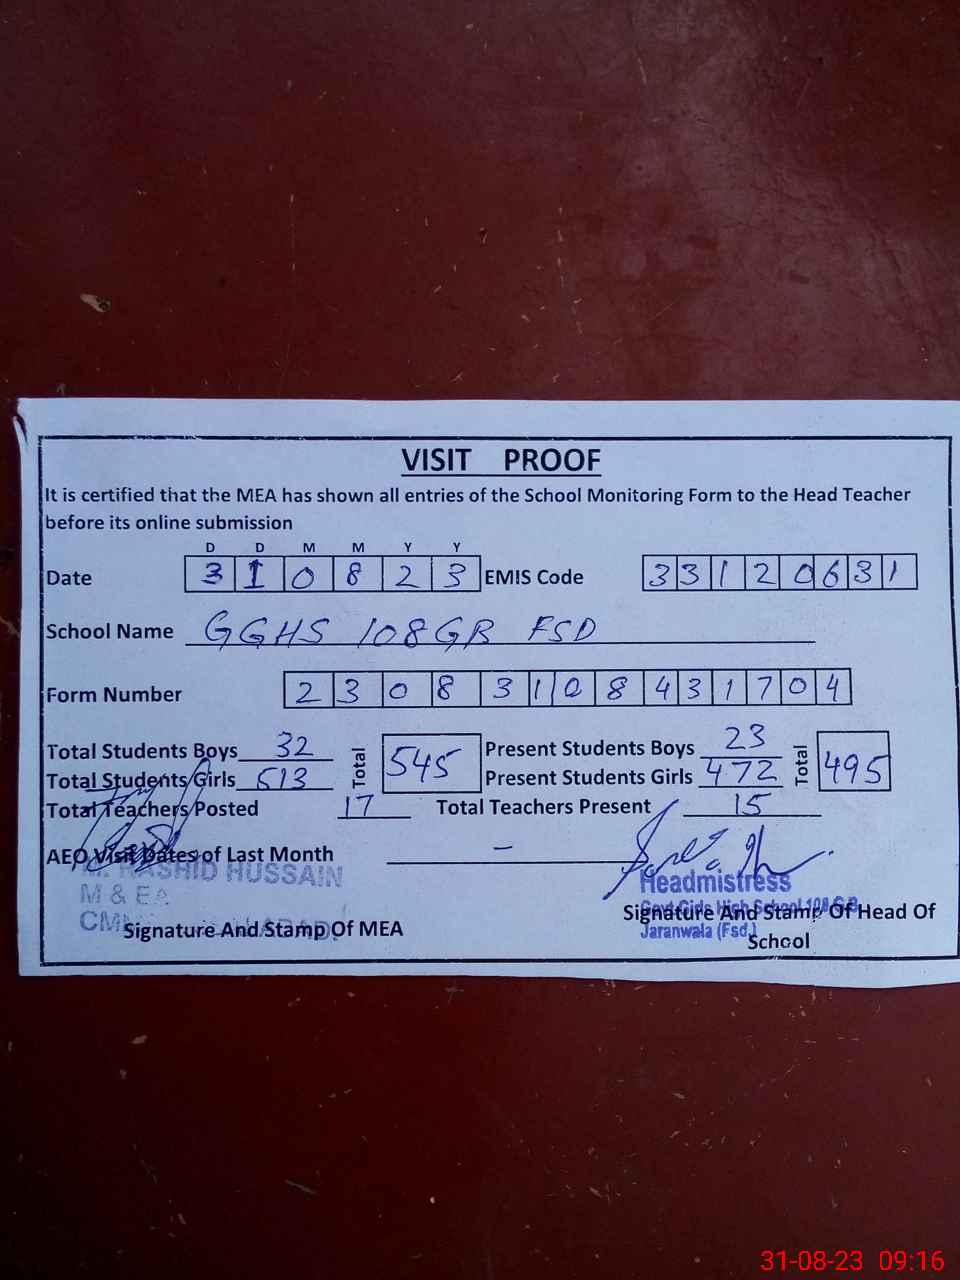 VISIT PROOF
It is certified that the MEA has shown all entries of the School Monitoring Form to the Head Teacher
before its online submission
D D M M Y Y
Date 3 1 0 8 2 3 EMIS Code 3 3 1 2 0 6 3 1
School Name GGHS 108GB FSD
Form Number 2 3 0 8 3 1 0 8 4 3 1 7 0 4
Total Students Boys 32 Total 545 Present Students Boys 23 Total 495
Total Students Girls 513 Present Students Girls 472
Total Teachers Posted 17 Total Teachers Present 15
AEO Visit Dates of Last Month –
M. RASHID HUSSAIN
M & EA
Headmistress
Govt Girls High School 108 G.B
Jaranwala (Fsd.)
Signature And Stamp Of MEA
Signature And Stamp Of Head Of
School
31-08-23 09:16